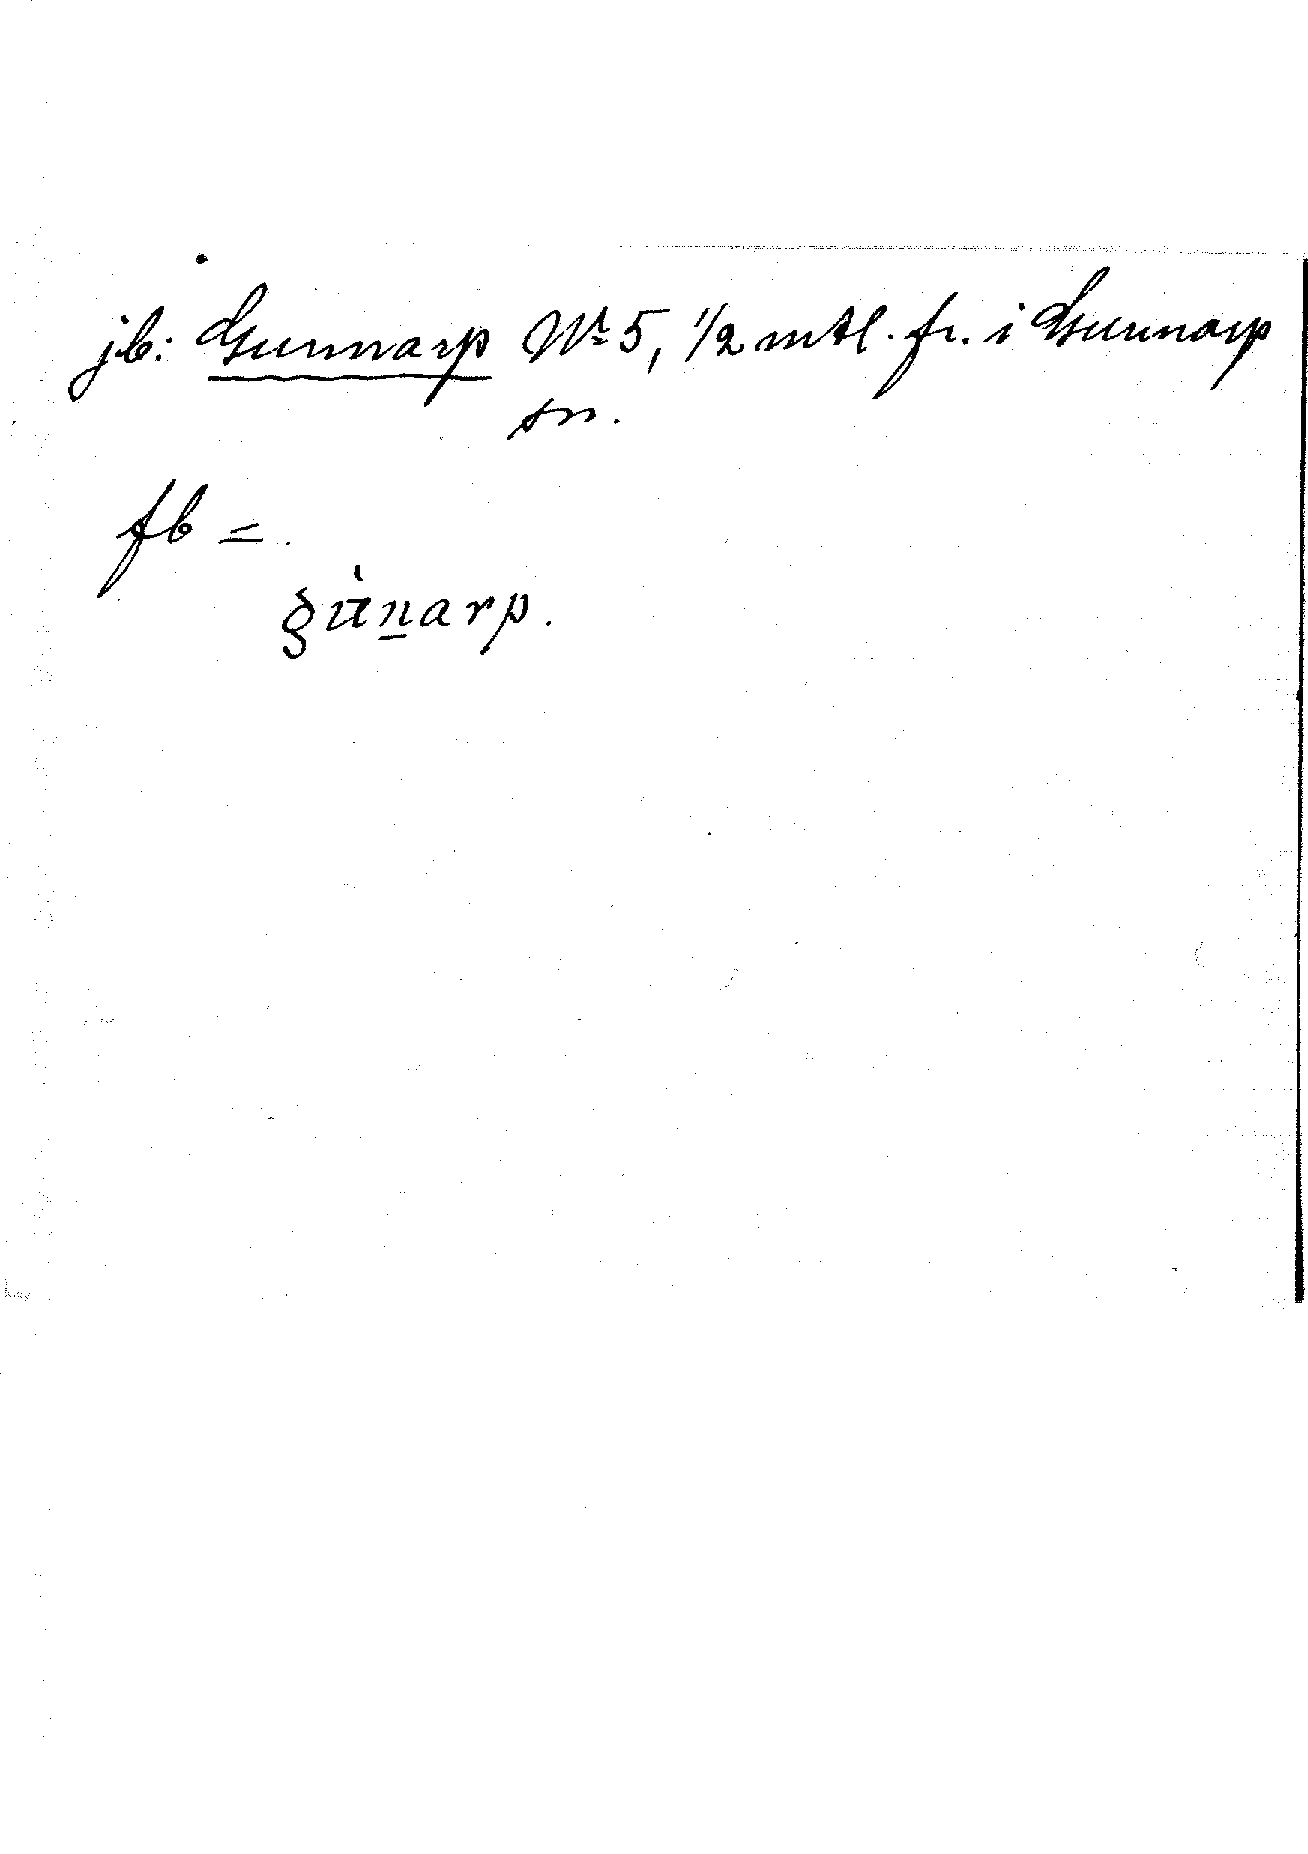 jb: Gunnarp Nr 5, 1/2 mtl. fr. i Gunnarp
sn.
fb =.
gùnarp.